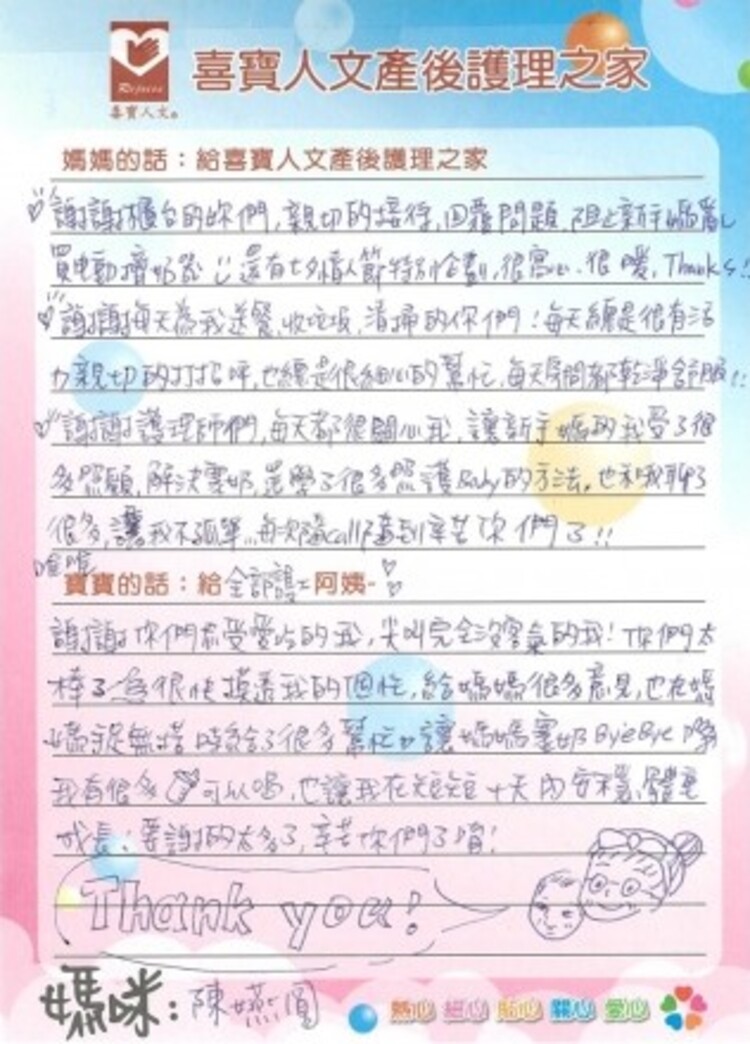 Rejoice
喜寶人文。
喜寶人文產後護理之家
媽媽的話：給喜寶人文產後護理之家
謝謝櫃台的妳們，親切的接待，回覆問題，阻止新手媽亂
買電動擠奶器 還有七夕情人節特別企劃，很窩心、很暖，Thanks!!
謝謝每天為我送餐、收垃圾、清掃的你們！每天總是很有活
力親切的打招呼，也總是很細心的幫忙，每天房間都乾淨舒服!!
謝謝護理師們，每天都很關心我，讓新手媽的我受了很
多照顧，解決塞奶，學了很多照護Baby的方法，也和我聊了
很多，讓我不孤單，每次隨call隨到辛苦你們了!!
寶寶的話：給全部護 阿姨-
謝謝你們忍受愛吃的我，尖叫完全沒客氣的我！你們太
棒了 很快摸透我的個性，給媽媽很多意見，也在媽
媽手足無措時給了很多幫忙 讓媽媽塞奶ByeBye
我有很多 可以喝，也讓我在短短十天內安穩、體重
成長！要謝的太多了，辛苦你們了唷！
Thank you!
媽咪：陳 圓
熱心 細心 貼心 關心 愛心